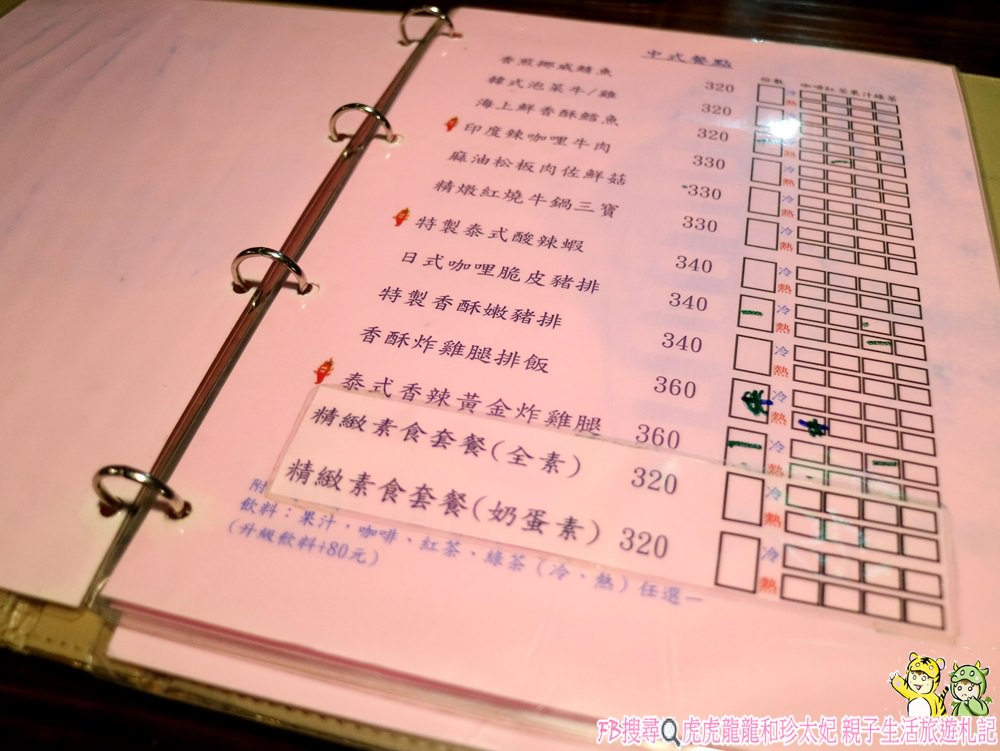 中式餐點
份數 咖啡 紅茶 果汁 綠茶
香煎挪威鯖魚 320 冷 熱
韓式泡菜牛/雞 320 冷 熱
海上鮮香酥鱈魚 320 冷 熱
印度辣咖哩牛肉 330 冷 熱
麻油松板肉佐鮮菇 330 冷 熱
精燉紅燒牛鍋三寶 330 冷 熱
特製泰式酸辣蝦 340 冷 熱
日式咖哩脆皮豬排 340 冷 熱
特製香酥嫩豬排 340 冷 熱
香酥炸雞腿排飯 360 冷 熱
泰式香辣黃金炸雞腿 360
精緻素食套餐(全素) 320 冷 熱
精緻素食套餐(奶蛋素) 320 冷 熱
附
飲料：果汁，咖啡、紅茶、綠茶（冷、熱）任選一
（升級飲料+80元）
FB搜尋 虎虎龍龍和珍太妃 親子生活旅遊札記